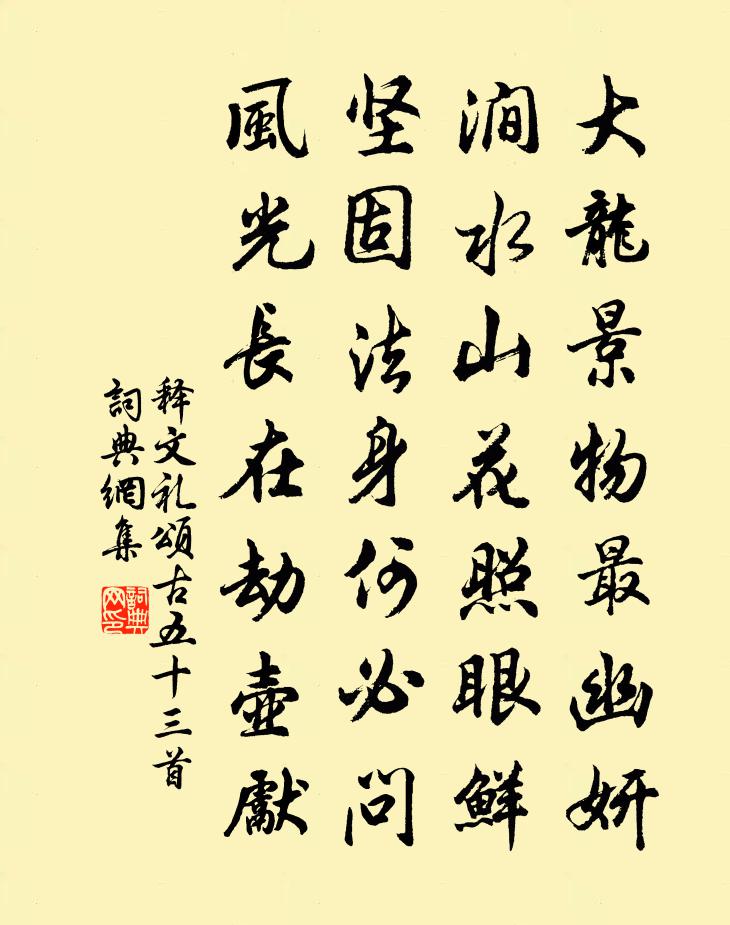 大龍景物最幽妍
澗水山花照眼鮮
坚固法身何必問
風光長在劫壺獻
释文礼頌古五十三首
詞典網集
詞典网印